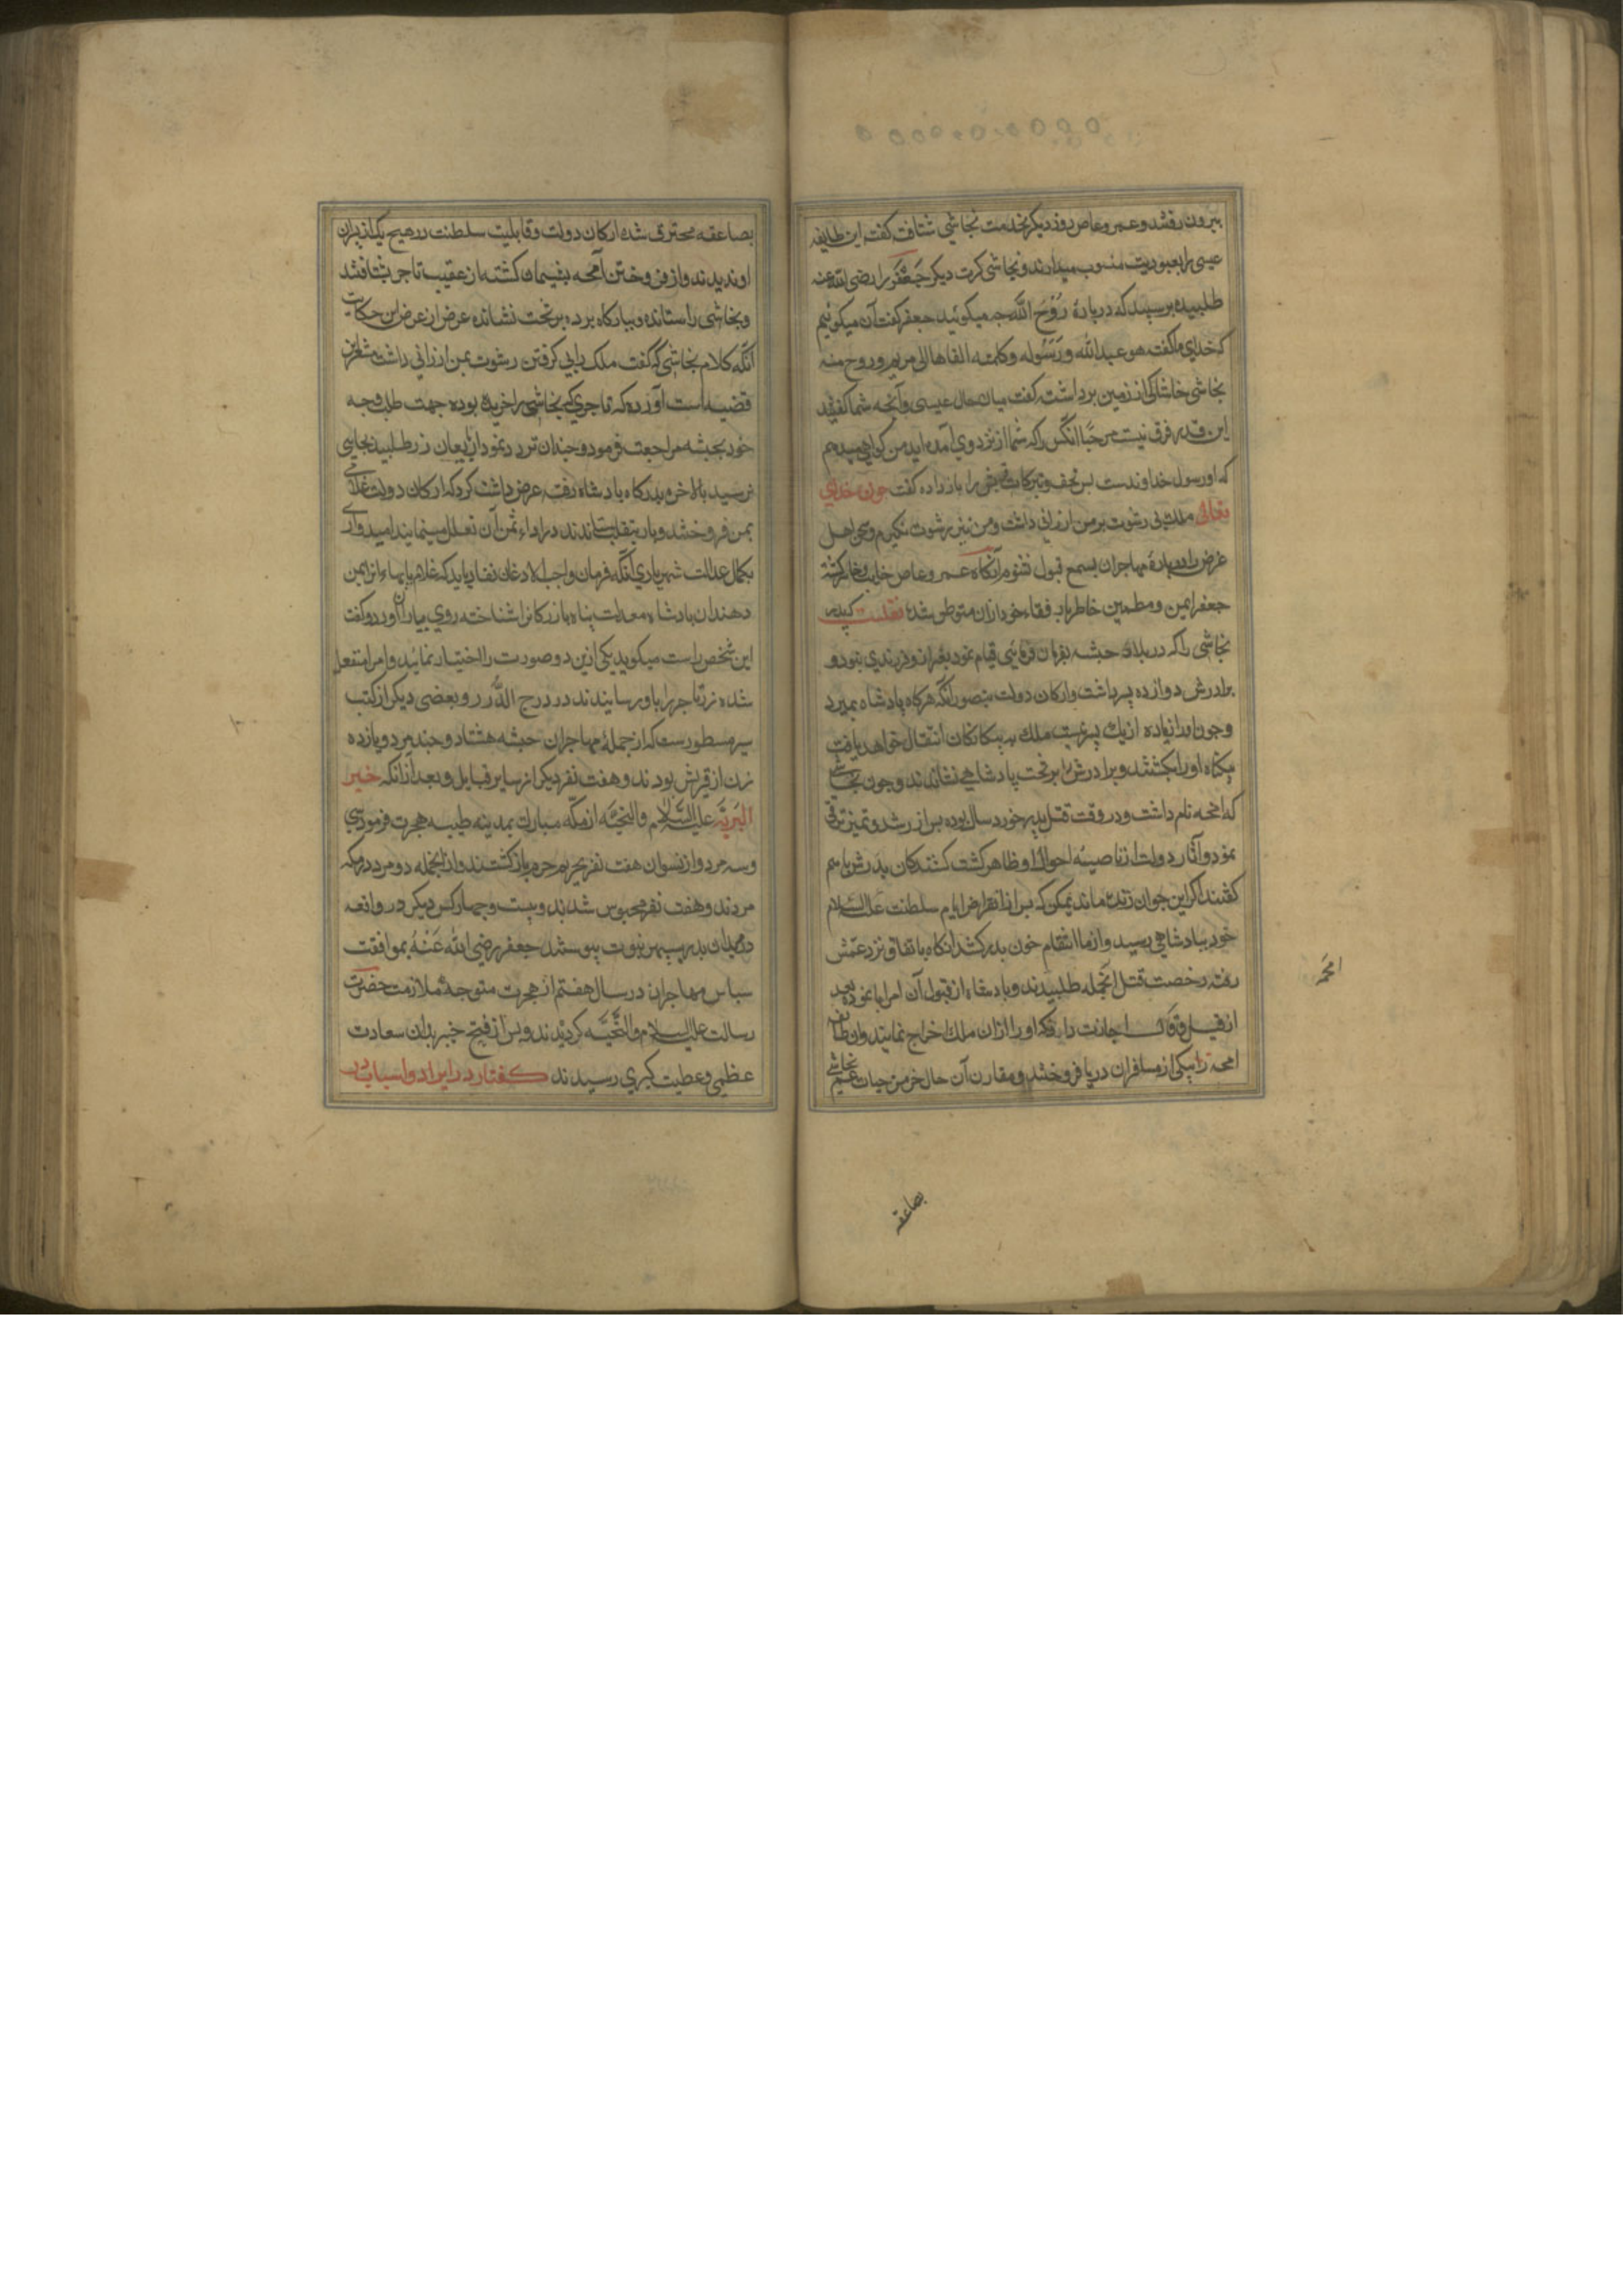 بیرون رفتند و عمرو عاص روز دیکر بخدمت نجاشی شتافت کفت این طایفه
عیسی را بعبودیت منسوب میدارند و نجاشی کرت دیکر جَعْفَر را رضی الله عنه
طلبیده پرسید که دربارهٔ رُوْحَ الله چه میکوئید جعفر کفت آن میکوئیم
که خدای ما کفت هو عبدالله و رَسُوله و کلمته القاها الی مریم و روح منه
نجاشی خاشاکی از زمین برداشت کفت میان حال عیسی و آنچه شما کفتید
این قدر فرق نیست مرحبا انکس را که شما از نزد وی آمده اید من کواهی میدهم
که او رسول خداوندست بس تحف و تبرکات قریش را باز داده کفت چون خدای
تعالی ملک بی رشوت بر من ارزانی داشت من نیز رشوت نکیرم و سخن اهل
غرض را دربارهٔ مهاجران بسمع قبول نشنوم آنکاه عمرو عاص خایب و خاسر کشته
جعفر ایمن و مطمین خاطر با رفقاء خود ازان متوطن شد نقلست که پدر
نجاشی را که در بلاد حبشه بفرمان فرمائی قیام نمود بغیر از و فرزندی نبود و
برادرش دوازده پسر داشت و ارکان دولت بتصور آنکه هرکاه پادشاه بمیرد
و چون او را زیاده از یك پسر نیست ملك به بیکانکان انتقال خواهد یافت
بیکناه او را بکشتند و برادرش را بر تخت پادشاهی نشاندند و چون نجاشی
که اصحمه نام داشت و در وقت قتل پدر خورد سال بوده بس از رشد و تمیز ترقی
نمود و آثار دولت از ناصیهٔ احوال او ظاهر کشت کشندکان پدرش با هم
کفتند اکر این جوان زنده ماند یمکن که بس از انقراض ایام سلطنت
خود بپادشاهی رسید و از ما انتقام خون پدر کشد انکاه باتفاق نزد عمش
رفته رخصت قتل اصحمه طلبیدند و پادشاه از قبول آن امر ابا نموده بعد
از قیل و قال اجازت داد که او را ازان ملك اخراج نمایند و ان طایفه
اصحمه را بیکی از مسافران دریا فروختند و مقارن آن حال خرمن حیات عم نجاشی
بصاعقه
بصاعقه محترق شده ارکان دولت و قابلیت سلطنت در هیچ یک از پسران
او ندیدند و از فروختن اصحمه پشیمان کشته از عقب تاجر بشتافتند
و نجاشی را ستانده و ببارکاه برده بر تخت نشانده غرض از عرض این حکایت
آنکه کلام نجاشی که کفت ملک را بی کرفتن رشوت بمن ارزانی داشت مشعر باین
قضیه است آورده که تاجری که نجاشی را خریده بوده جهت طلب وجه
خود بحبشه مراجعت فرمود و چندان تردد نمود از بایعان زر طلبید بجایی
نرسید بالاخره بدرکاه پادشاه رفته عرض داشت کرد که ارکان دولت غلامی
بمن فروختند و باز بتغلب ستاندند در اداء ثمن آن تعلل مینمایند امیدوارم
بکمال عدالت شهریاری آنکه فرمان واجب الاذعان نفاذ یابد که غلام یا بهاء انرا بمن
دهند ان پادشاه معدلت پناه بازرکانرا شناخته روی بیاران آورد و کفت
این شخص راست میکوید یکی ازین دو صورت را اختیار نمائید و امرا منفعل
شده زر تاجر را باو رسانیدند در درج الدُرر و بعضی دیکر از کتب
سیر مسطورست که از جملهٔ مهاجران حبشه هشتاد و چند مرد و یازده
زن از قریش بودند و هفت نفر دیکر از سایر قبایل و بعد از انکه خیر
البَریّه علیه السَّلام والتحیَّه از مکّه مبارک بمدینه طیبه هجرت فرمود سی
و سه مرد و از نسوان هفت نفر بحریم حرم باز کشتند و از انجمله دو مرد در مکه
مردند و هفت نفر محبوس شدند و بیست و چهار کس دیکر در واقعه
بدر بسپهر نبوت پیوستند جعفر رضی الله عَنْهُ بموافقت
سایر مهاجران در سال هفتم از هجرت متوجهٔ ملازمت حضرت
رسالت علیه السلام والتَّحیَّه کردیدند و بس از فتح خیبر بدان سعادت
عظمی و عطیت کبری رسیدند کفتار در ایراد اسباب